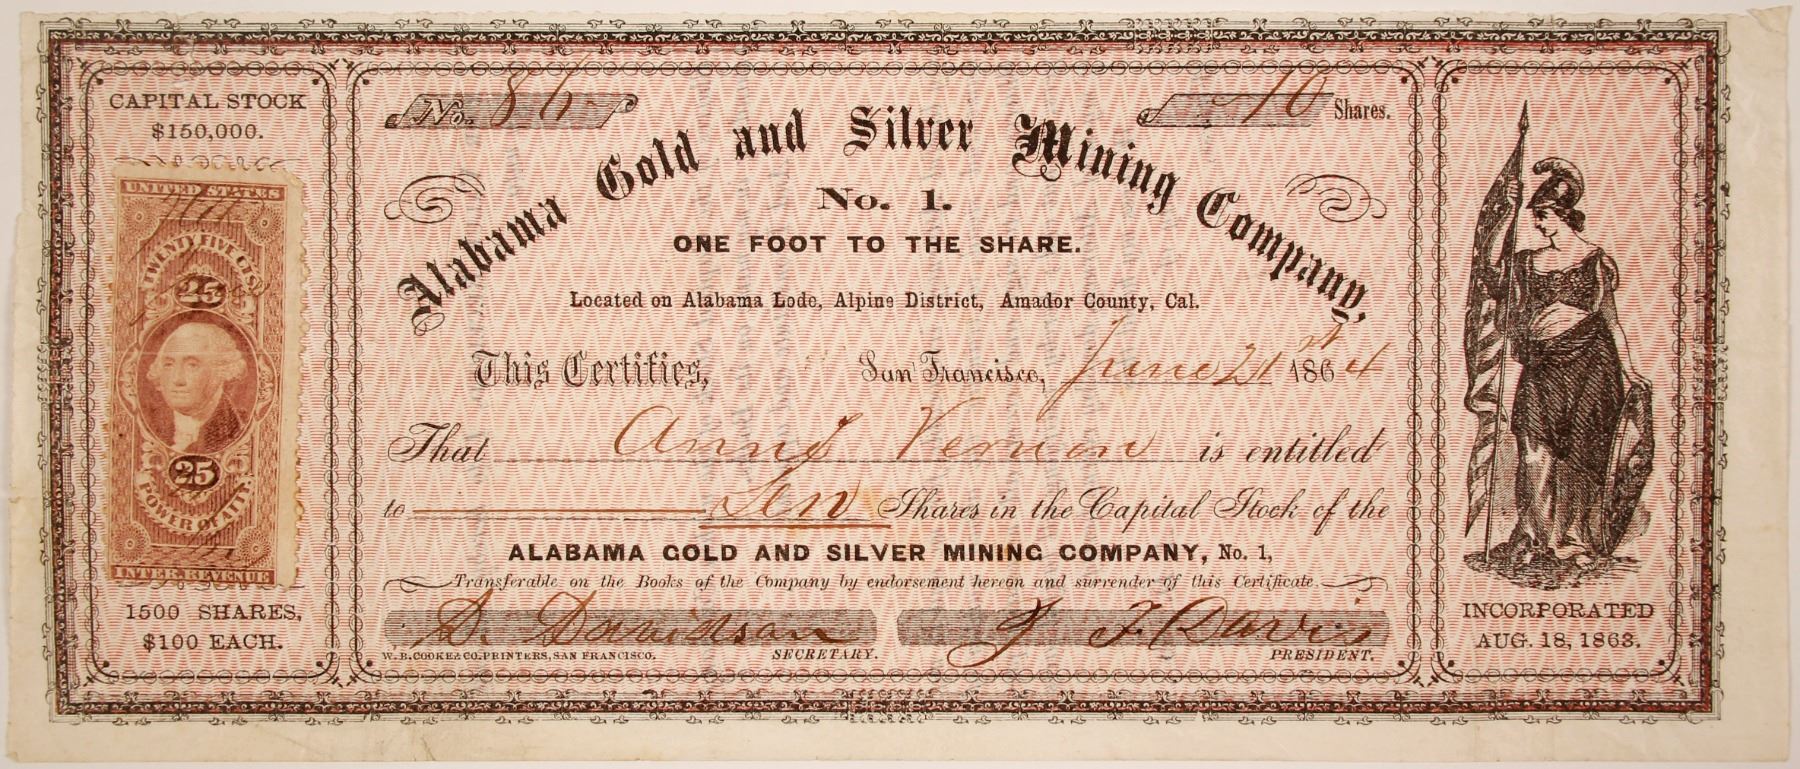 CAPITAL STOCK
$150,000.
UNITED STATES
TWENTY FIVE CTS.
25
25
POWER OF ATTY.
INTER. REVENUE
1500 SHARES,
$100 EACH.
No. 86
10 Shares.
Alabama Gold and Silver Mining Company,
No. 1.
ONE FOOT TO THE SHARE.
Located on Alabama Lode, Alpine District, Amador County, Cal.
This Certifies, San Francisco, June 21st 1864
That Vernon is entitled
to Ten Shares in the Capital Stock of the
ALABAMA GOLD AND SILVER MINING COMPANY, No. 1,
Transferable on the Books of the Company by endorsement hereon and surrender of this Certificate.
D. Davidson J F. Davis
W. B. COOKE & CO. PRINTERS, SAN FRANCISCO. SECRETARY. PRESIDENT.
INCORPORATED
AUG. 18, 1863.